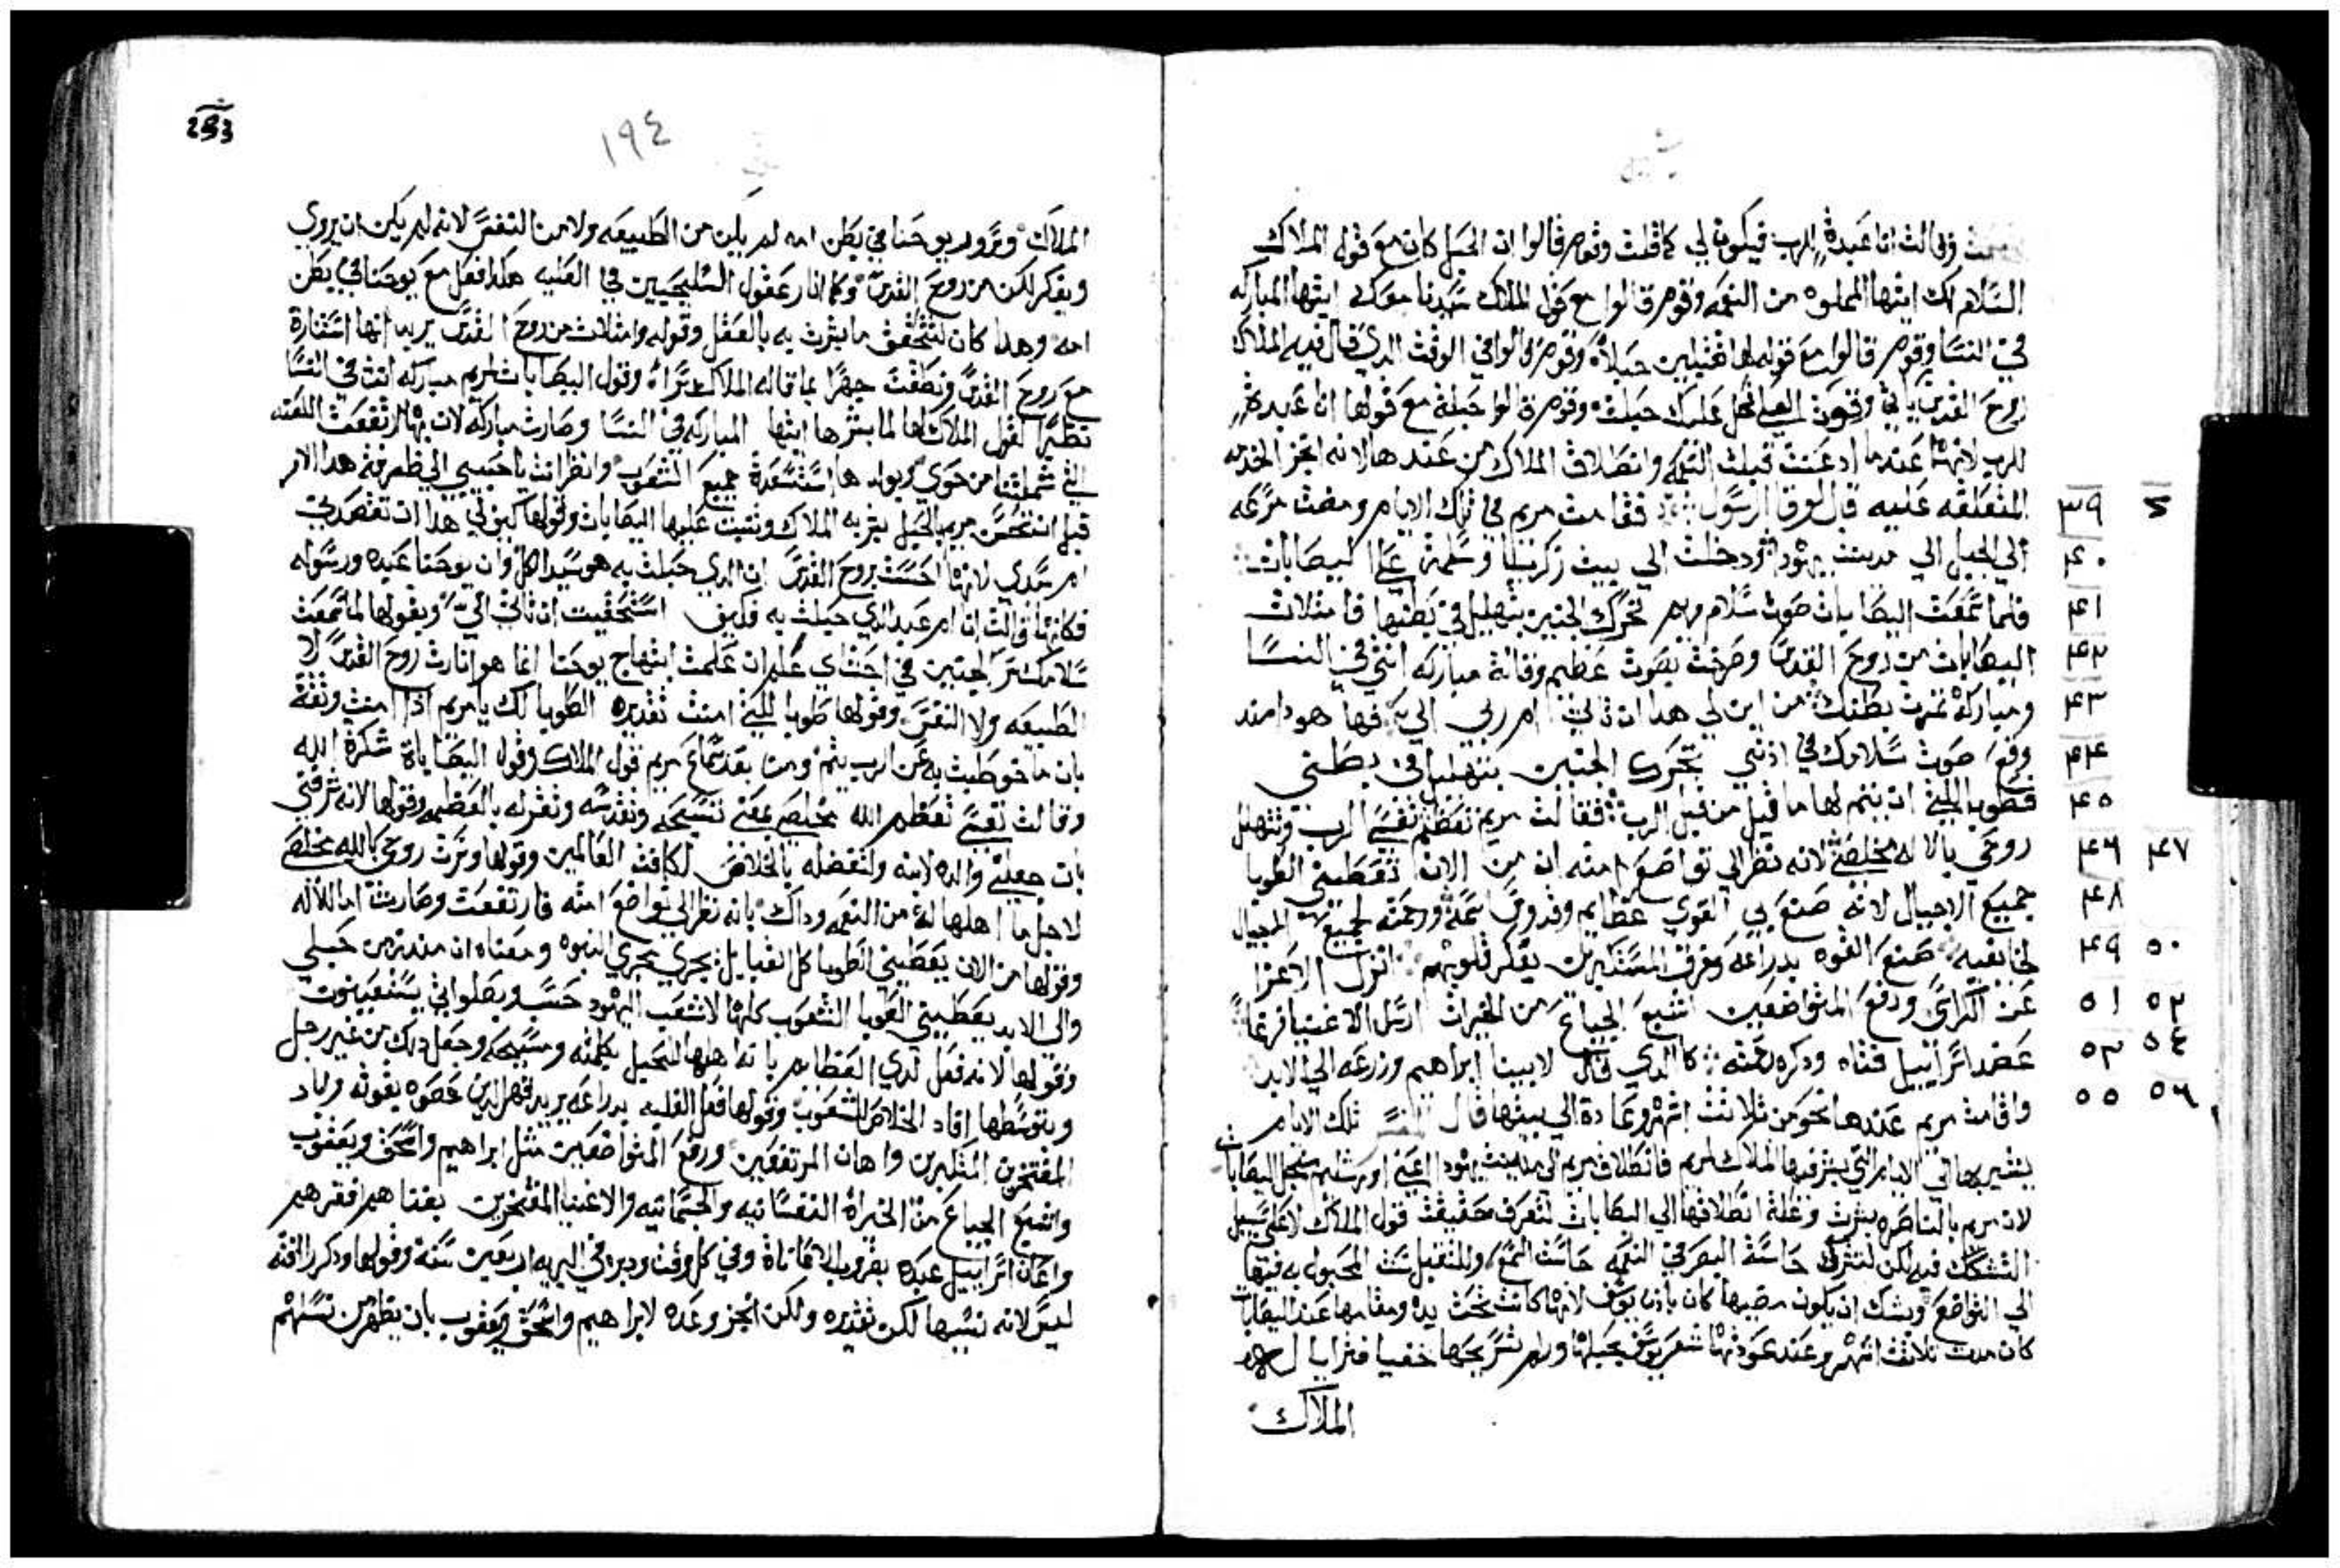 وقالت انا عبدة للرب فيكون لي كما قلت وقوم قالوا ان الحبل كان مع قول الملاك
السلام لك ايتها المملوه من النعمه وقوم قالوا مع قول الملاك سيدنا معك ايتها المباركه
في النسا وقوم قالوا مع قوله لها تقبلين حبلاً وقوم قالوا في الوقت الذي قال فيه الملاك
روح القدس ياتي وقوة العلي تحل عليك حبلت وقوم قالوا حبلة مع قولها انا عبدة
للرب لانها عندما ادعنت قبلت النعمه وانطلاق الملاك من عندها لانه انجز الخدمه
المتعلقه عليه قال لوقا الرسول فقامت مريم في تلك الايام ومضت مسرعه
الي الجبل الي مدينت يهودا ودخلت الي بيت زكريا وسلمة علي اليصابات
فلما سمعت اليصابات صوت سلام مريم تحرك الجنين بتهليل في بطنها فامتلات
اليصابات من روح القدس وصرخت بصوت عظيم وقالة مباركه انتي في النسا
ومباركة ثمرت بطنك من اين لي هدا ان تاتي ام ربي الي فها هودا مند
وقع صوت سلامك في اذني تحرك الجنين بتهليل في بطني
فطوبا للتي ان يتم لها ما قيل من قبل الرب فقالت مريم تعظم نفسي الرب وتتهلل
روحي بالاله مخلصي لانه نظر الي تواضع امته ان من الان تعطيني الطوبا
جميع الاجيال لانه صنع بي القوي عظايم وقدوس اسمه ورحمته لجميع الاجيال
لخايفيه صنع القوه بدراعه وفرق المستكبرين بفكر قلوبهم انزل الاعزا
عن الكراسي ورفع المتواضعين اشبع الجياع من الخيرات ارسل الاغنيا فرغا
عضد اسراييل فتاه ودكر رحمته كالذي قال لابينا ابراهيم وزرعه الي الابد
واقامت مريم عندها نحو من ثلاثت اشهر وعادة الي بيتها قال المفسر تلك الايام
يشير بها الي الايام التي بشر فيها الملاك لمريم فانطلاق مريم الي مدينت يهودا اعني اورشليم
لان مريم بالناصره بشرت وعلة انطلاقها الي اليصابات لتعرف حقيقت قول الملاك لا علي سبيل
التشكك فيه لكن لتشرك حاست البصر في النعمه حاست السمع
الي التواضع ويشك ان يكون مضيها كان باذن يوسف لانها كانت تحت يده ومقامها عند اليصابات
كان مدت ثلاثت اشهر وعند عودتها شعر يوسف بحبلها ولم تسريحها خفيا فترايا له
الملاك
٣٩ ٤٠ ٤١ ٤٢ ٤٣ ٤٤ ٤٥
٤٧ ٤٦
٤٨
٥٠ ٤٩
٥٢ ٥١
٥٤ ٥٣
٥٦ ٥٥
293
١٩٤
الملاك وسرور يوحنا في بطن امه لم يكن من الطبيعه ولا من النفس لانه لم يكن ان يروي
ويفكر لكن من روح القدس وكما انار عقول السليحيين في العليه هكدا فعل مع يوحنا في بطن
امه وهدا كان لتتحقق ما بشرت به بالفعل وقوله وامتلات من روح القدس يريد انها استنارة
مع روح القدس ونطقت جهرا بما قاله الملاك سرا وقول اليصابات لمريم مباركه انت في النسا
نظير لقول الملاك لها لما بشرها ايتها المباركه في النسا وصارت مباركه لان بها ارتفعت اللعنه
التي شملتنا من حوي وبولدها استسعدة جميع الشعوب وانظر انت يا حبيبي الي ظرفة هدا الامر
قبل ان تحس مريم بالحبل بشر به الملاك ونبت عليها اليصابات وقولها كيف لي هدا ان تقصدني
ام سيدي لانها احست بروح القدس ان الدي حبلت به هو سيد الكل وان يوحنا عبده ورسوله
فكانها قالت انا ام عبد الدي حبلت به فكيف استحقيت ان تاتي الي وبقولها لما سمعت
سلامك سر الجنين في احشاي علم ان علمت ابتهاج يوحنا انما هو انارت روح القدس لا
الطبيعه ولا النفس وقولها طوبا للتي امنت تقديره الطوبا لك يا مريم اذا امنت وثقة
بان ما خوطبت به عن الرب يتم ومن بعد سماع مريم قول الملاك وقول اليصاباة شكرة الله
وقالت نفسي تعظم الله مخلصي بمعني تسبحه وتقدسه وتقر له بالعظمه وقولها لانه شرفني
بان جعلني والده لابنه ولتفضله بالخلاص لكافت العالمين وقولها وسرت روحي بالله مخلصي
لاجل ما اهلها له من النعمه وداك بانه نظر الي تواضع امته فارتفعت وصارت اما للاله
وقولها من الان يعطيني الطوبا كل القبايل يجري مجري النبوه ومعناه ان مند زمن حبلي
والي الابد يعطيني الطوبا الشعوب كلها لا شعب اليهود حسب
وقولها لانه فعل لدي العظايم بانه اهلها لتحبل بكلمته ومسيحه وجعل دلك من غير رجل
وبتوسطها افاد الخلاص للشعوب وقولها فعل الغلبه بدراعه يريد قهر الدين عصوه بقوته
المفتخرين المتكبرين واهان المرتفعين ورفع المتواضعين مثل ابراهيم واسحق ويعقوب
واشبع الجياع من الخيراة النفسانيه والجسمانيه والاغنيا المفتخرين بغناهم افقرهم
واعان اسراييل عبده بضروب الاعاناة وفي كل وقت ودبره في البريه اربعين سنة وقولها ودكر رافته
ليس لانه نسيها لكن تقديره ولكن انجز وعده لابراهيم واسحق ويعقوب بان يظهر من نسلهم